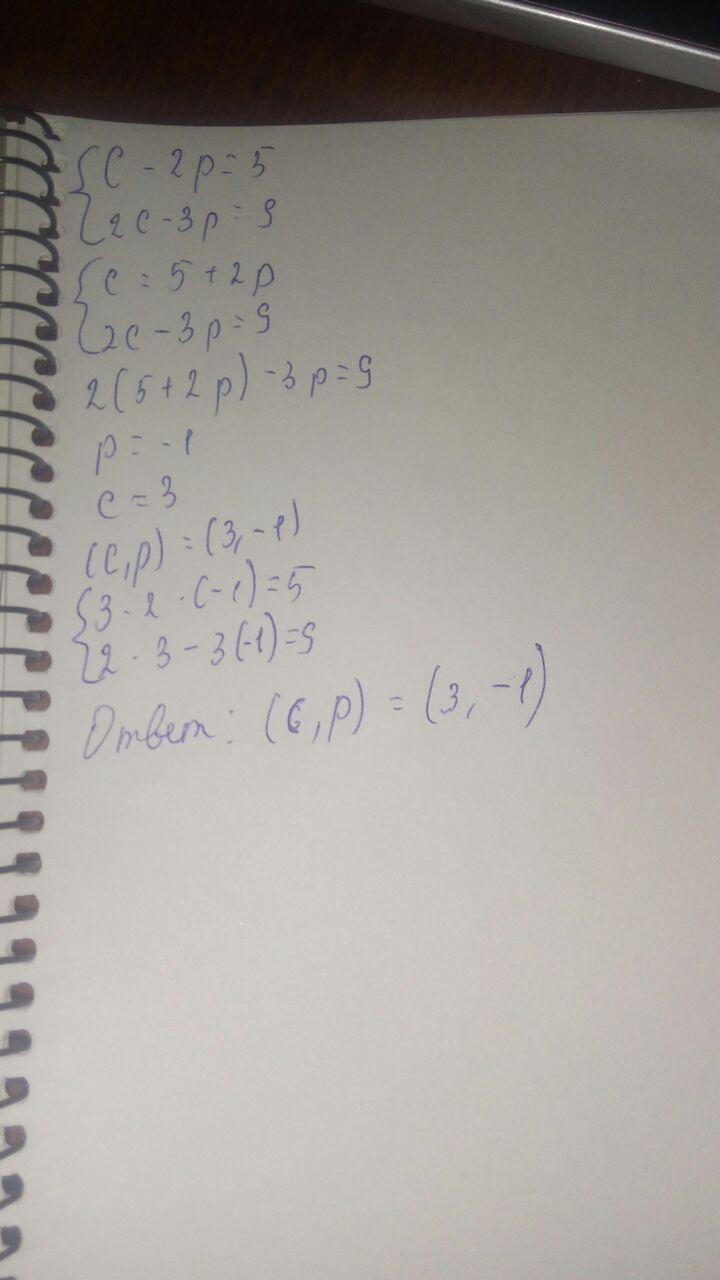 { C - 2p = 5
2c - 3p = 9
{ c = 5 + 2p
2c - 3p = 9
2(5 + 2p) - 3p = 9
p = -1
c = 3
(c, p) = (3, -1)
{ 3 - 2 · (-1) = 5
2 · 3 - 3(-1) = 9
Ответ: (c, p) = (3, -1)